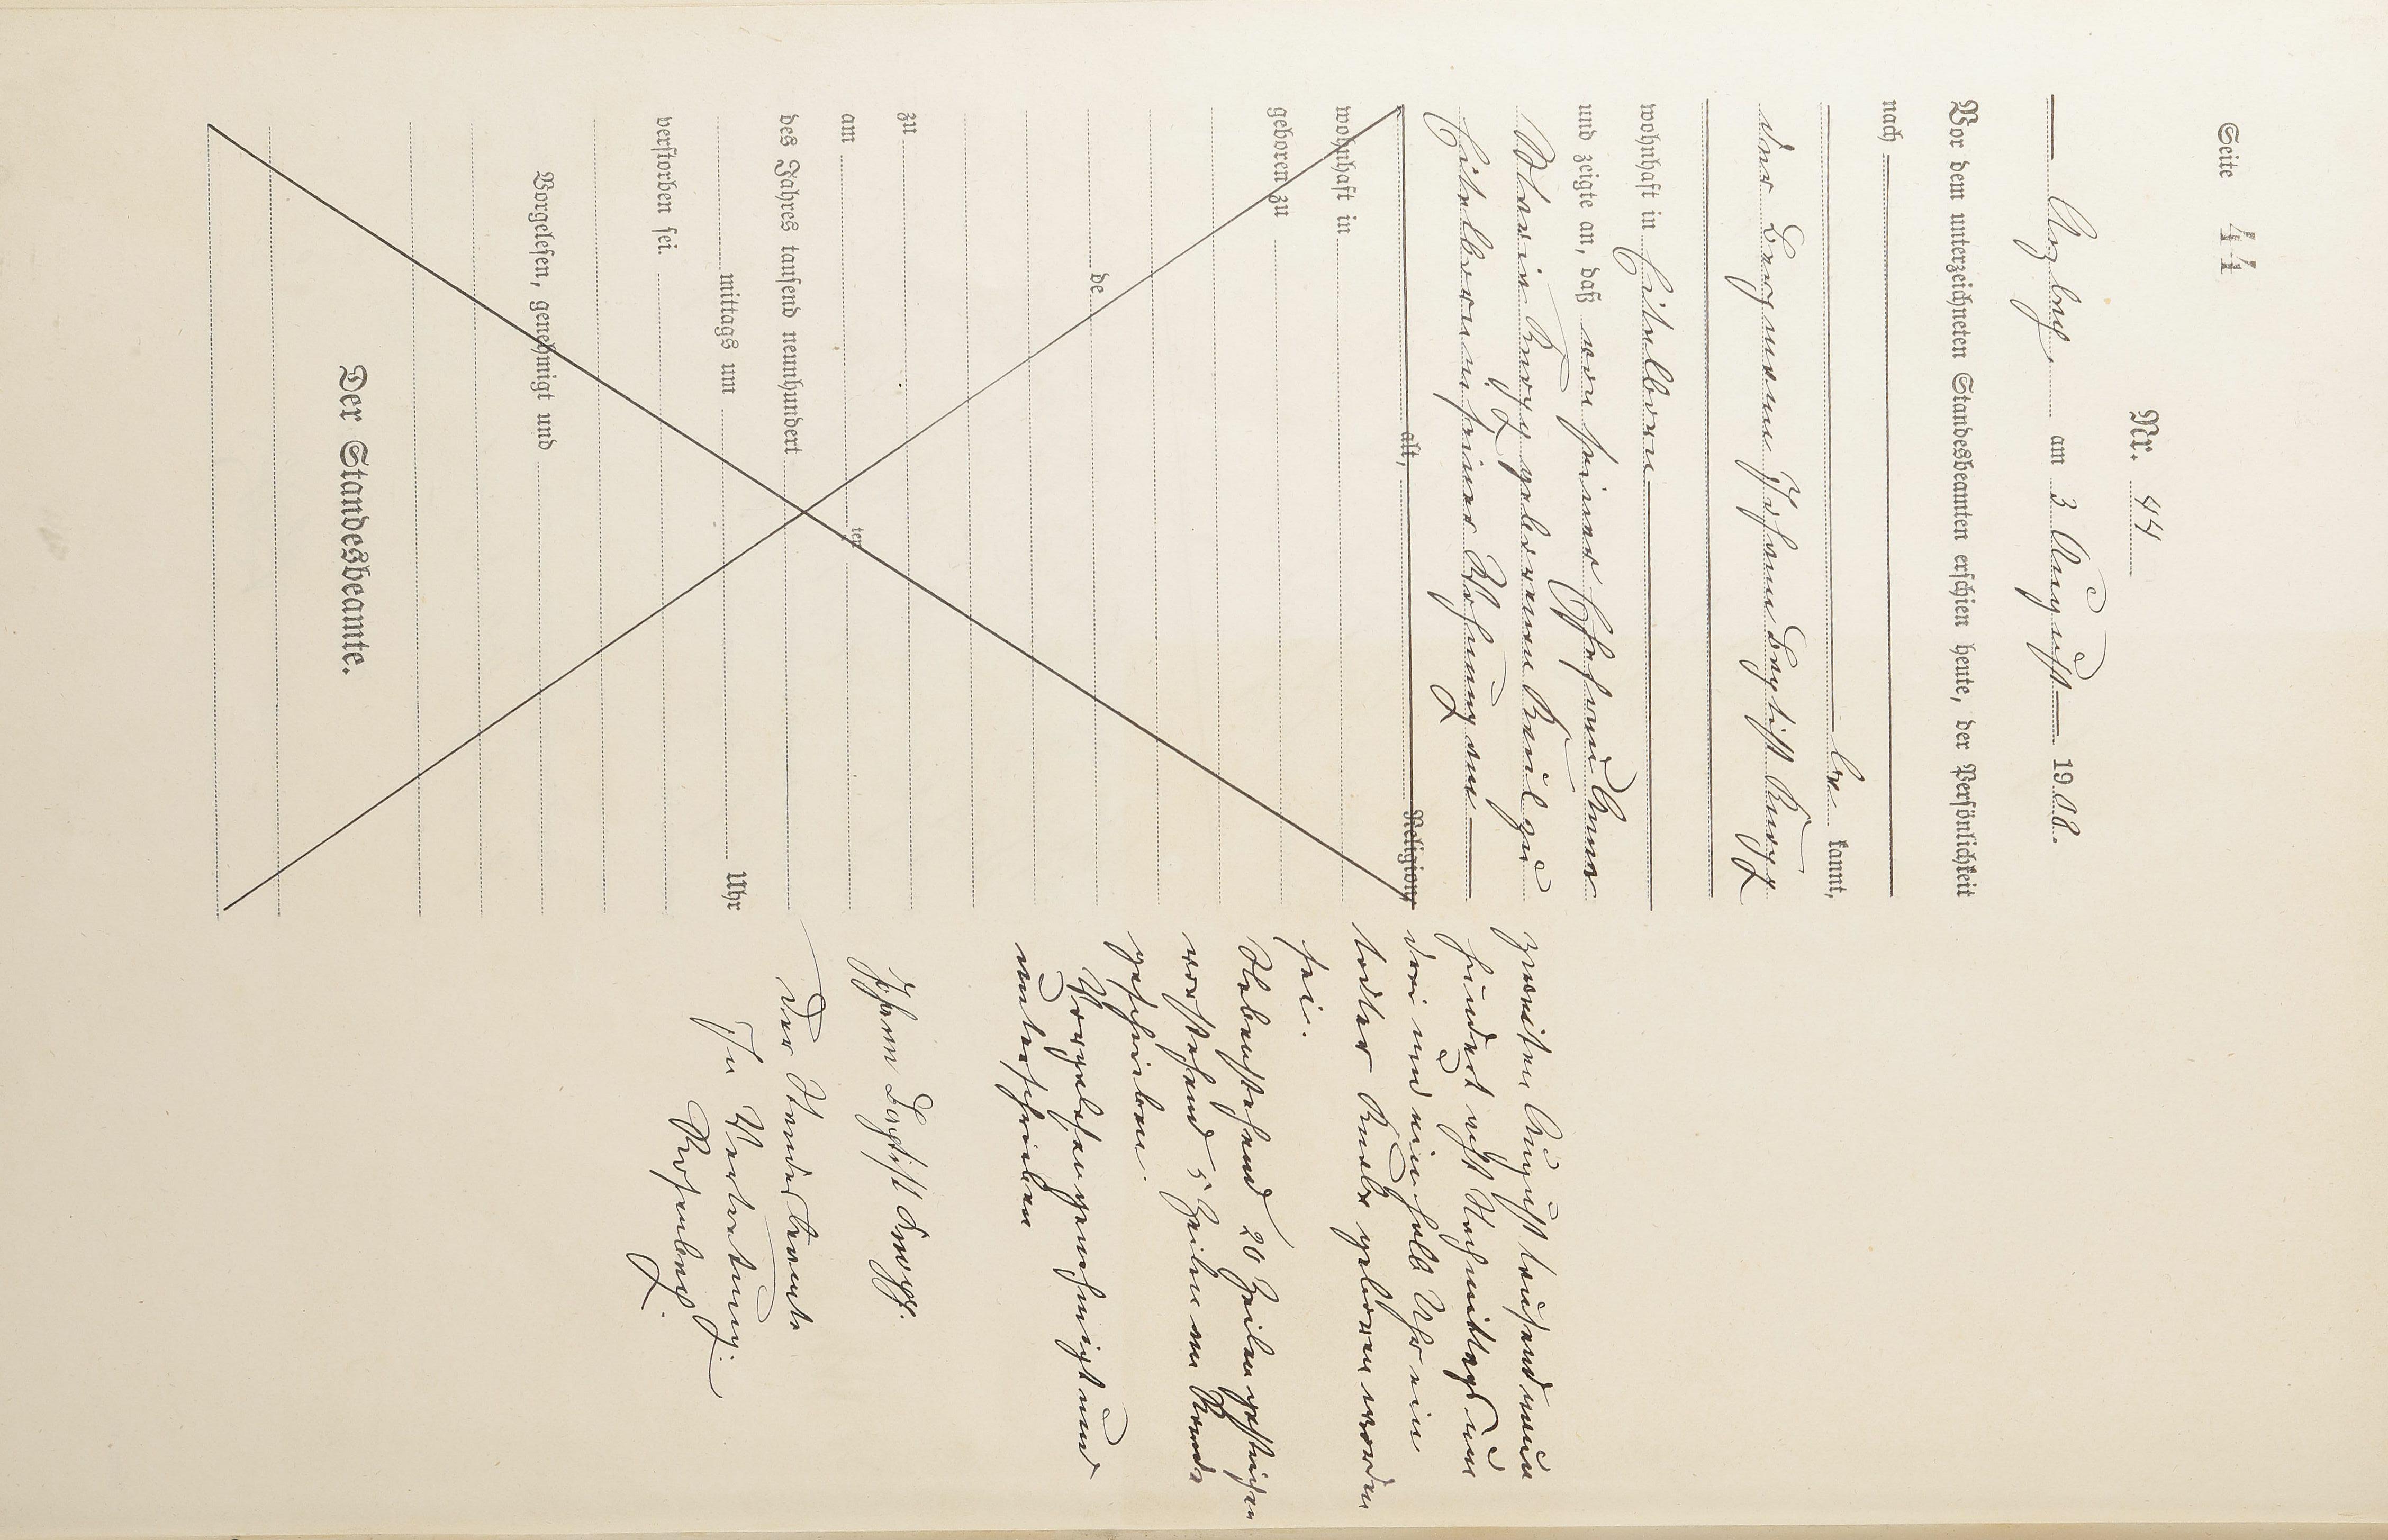 Seite 44
Nr. 44
Arzbach, am 3 August 1908.
Vor dem unterzeichneten Standesbeamten erschien heute, der Persönlichkeit
nach
be kannt,
der Bergmann Johann Baptist Knopp
wohnhaft in Eitelborn
und zeigte an, daß von seiner Ehefrau Anna
Maria Knopp geborenen
Eitelborn in seiner Wohnung am
alt, Religion,
wohnhaft in
geboren zu
de
zu
am ten
des Jahres tausend neunhundert
mittags um Uhr
verstorben sei.
Vorgelesen, genehmigt und
Der Standesbeamte.
zweiten August tausend neun
hundert acht Nachmittags um
drei und ein halb Uhr ein
todter Knabe geboren worden
sei.
Nebenstehend 20 Zeilen gestrichen
vorstehend 5 Zeilen am Rande
geschrieben.
Vorgelesen genehmigt und
unterschrieben
Johann Baptist Knopp.
Der Standesbeamte
In Vertretung: